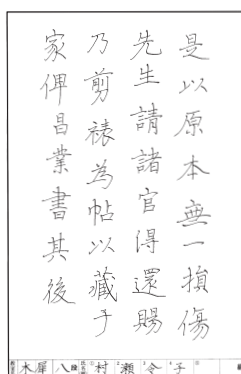 是以原本無一損傷
先生請諸官得還賜
乃剪裱為帖以藏于
家俾昌業書其後
木犀 八段 村瀬令子